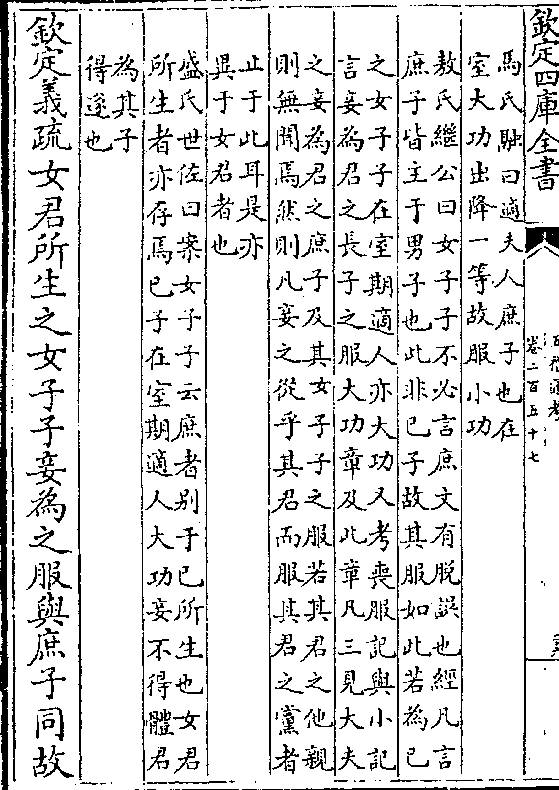 欽定四庫全書
卷二百五十七
馬氏融曰適夫人庶子也在
室大功出降一等故服小功
敖氏繼公曰女子子不必言庶文有脱誤也經凡言
庶子皆主于男子也此非已子故其服如此若為已
之女子子在室期適人亦大功又考喪服記與小記
言妾為君之長子之服大功章及此章凡三見大夫
之妾為君之庶子及其女子子之服若其君之他親
則無聞焉然則凡妾之從乎其君而服其君之黨者
止于此耳是亦
異于女君者也
盛氏世佐曰案女子子云庶者别于已所生也女君
所生者亦存焉已子在室期適人大功妾不得體君
為其子
得遂也
欽定義疏女君所生之女子子妾為之服與庶子同故